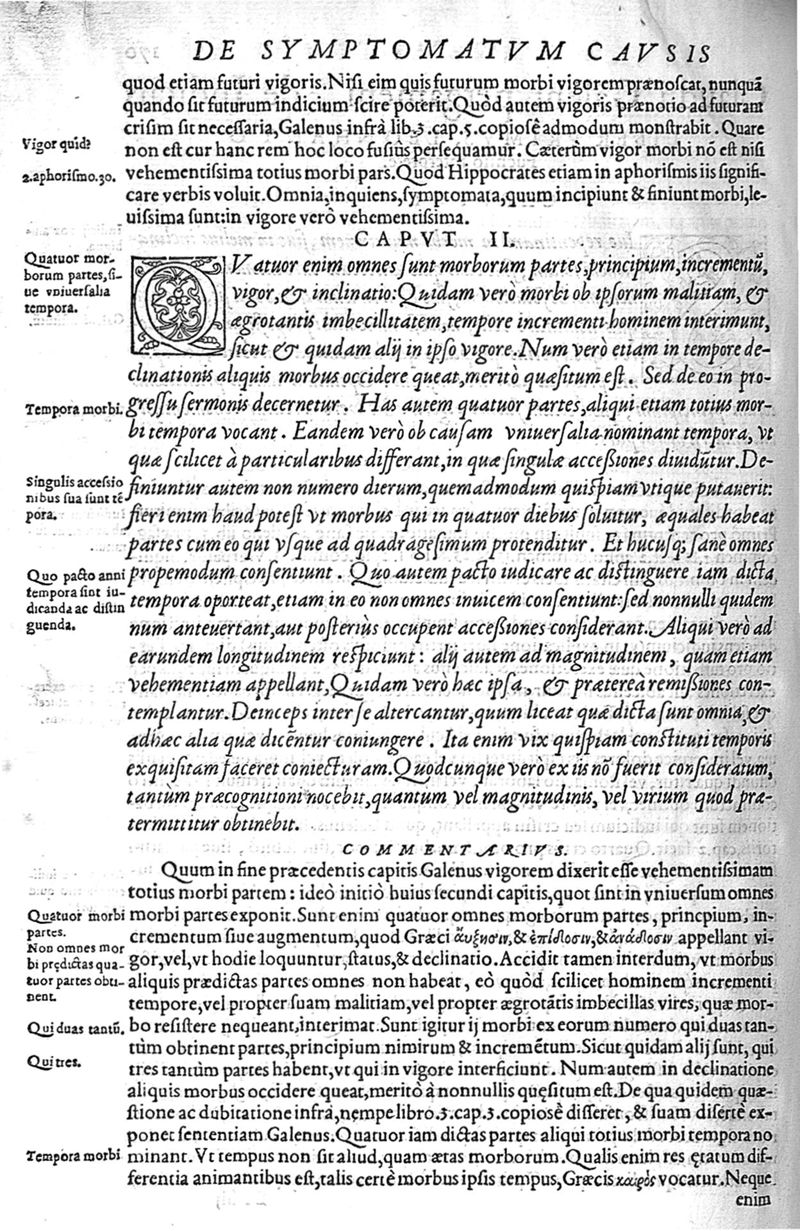 DE SYMPTOMATVM CAVSIS
quod etiam futuri vigoris. Nisi eim quis futurum morbi vigorem prænoscat, nunquã
quando sit futurum indicium scire poterit. Quòd autem vigoris prænotio ad futuram
crisim sit necessaria, Galenus infrà lib. 3. cap. 5. copiosè admodum monstrabit. Quare
Vigor quid?
non est cur hanc rem hoc loco fusius persequamur. Cæterùm vigor morbi nõ est nisi
2. aphorismo. 30.
vehementissima totius morbi pars. Quod Hippocrates etiam in aphorismis iis signifi-
care verbis voluit. Omnia, inquiens, symptomata, quum incipiunt & finiunt morbi, le-
uissima sunt: in vigore verò vehementissima.
CAPVT II.
Quatuor mor-
borum partes, si-
ue vniuersalia
tempora.
QVatuor enim omnes sunt morborum partes, principium, incrementũ,
vigor, & inclinatio: Quidam verò morbi ob ipsorum malitiam, &
ægrotantis imbecillitatem, tempore incrementi hominem interimunt,
sicut & quidam alij in ipso vigore. Num verò etiam in tempore de-
clinationis aliquis morbus occidere queat, meritò quæsitum est. Sed de eo in pro-
Tempora morbi.
gressu sermonis decernetur. Has autem quatuor partes, aliqui etiam totius mor-
bi tempora vocant. Eandem verò ob causam vniuersalia nominant tempora, vt
quæ scilicet à particularibus differant, in quæ singulæ accessiones diuidũtur. De-
Singulis accessio
nibus sua sunt tẽ
pora.
finiuntur autem non numero dierum, quemadmodum quispiam vtique putauerit:
fieri enim haud potest vt morbus qui in quatuor diebus soluitur, æquales habeat
partes cum eo qui vsque ad quadragesimum protenditur. Et hucusq; sanè omnes
Quo pacto anni
tempora sint iu-
dicanda ac distin
guenda.
propemodum consentiunt. Quo autem pacto iudicare ac distinguere iam dicta
tempora oporteat, etiam in eo non omnes inuicem consentiunt: sed nonnulli quidem
num anteuertant, aut posterius occupent accessiones considerant. Aliqui verò ad
earundem longitudinem respiciunt: alij autem ad magnitudinem, quam etiam
vehementiam appellant, Quidam verò hæc ipsa, & præterea remissiones con-
templantur. Deinceps inter se altercantur, quum liceat quæ dicta sunt omnia, &
adhæc alia quæ dicẽtur coniungere. Ita enim vix quispiam constituti temporis
exquisitam faceret coniecturam. Quodcunque verò ex iis nõ fuerit consideratum,
tantùm præcognitioni nocebit, quantum vel magnitudinis, vel virium quod præ-
termittitur obtinebit.
COMMENTARIVS.
Quum in fine præcedentis capitis Galenus vigorem dixerit esse vehementissimam
totius morbi partem: ideò initiò huius secundi capitis, quot sint in vniuersum omnes
Quatuor morbi
partes.
morbi partes exponit. Sunt enim quatuor omnes morborum partes, princpium, in-
crementum siue augmentum, quod Græci ἄυξησιν, & ἐπίδοσιν, & ἀνάδοσιν appellant vi-
Non omnes mor
bi prędictas qua-
tuor partes obti-
nent.
gor, vel, vt hodie loquuntur, status, & declinatio. Accidit tamen interdum, vt morbus
aliquis prædictas partes omnes non habeat, eò quòd scilicet hominem incrementi
tempore, vel propter suam malitiam, vel propter ægrotãtis imbecillas vires, quæ mor-
Qui duas tantũ.
bo resistere nequeant, interimat. Sunt igitur ij morbi ex eorum numero qui duas tan-
tùm obtinent partes, principium nimirum & incremẽtum. Sicut quidam alij sunt, qui
Qui tres.
tres tantùm partes habent, vt qui in vigore interficiunt. Num autem in declinatione
aliquis morbus occidere queat, meritò à nonnullis quęsitum est. De qua quidem quæ-
stione ac dubitatione infrà, nempe libro. 3. cap. 3. copiosè disseret, & suam disertè ex-
ponet sententiam Galenus. Quatuor iam dictas partes aliqui totius morbi tempora no
Tempora morbi
minant. Vt tempus non sit aliud, quam ætas morborum. Qualis enim res ętatum dif-
ferentia animantibus est, talis certè morbus ipsis tempus, Græcis καιρὸς vocatur. Neque
enim